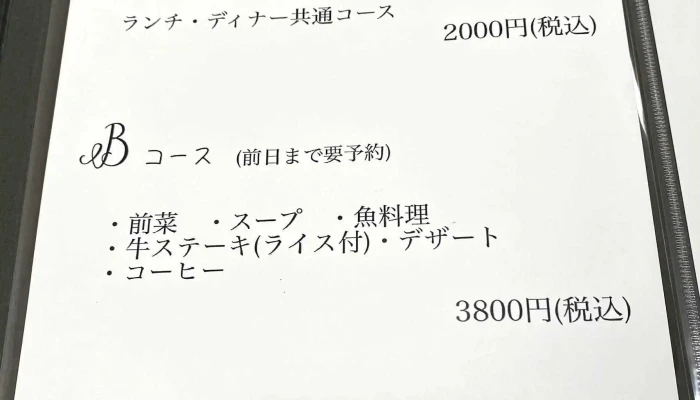 ランチ・ディナー共通コース
2000円(税込)
B コース (前日まで要予約)
・前菜 ・スープ ・魚料理
・牛ステーキ(ライス付)・デザート
・コーヒー
3800円(税込)